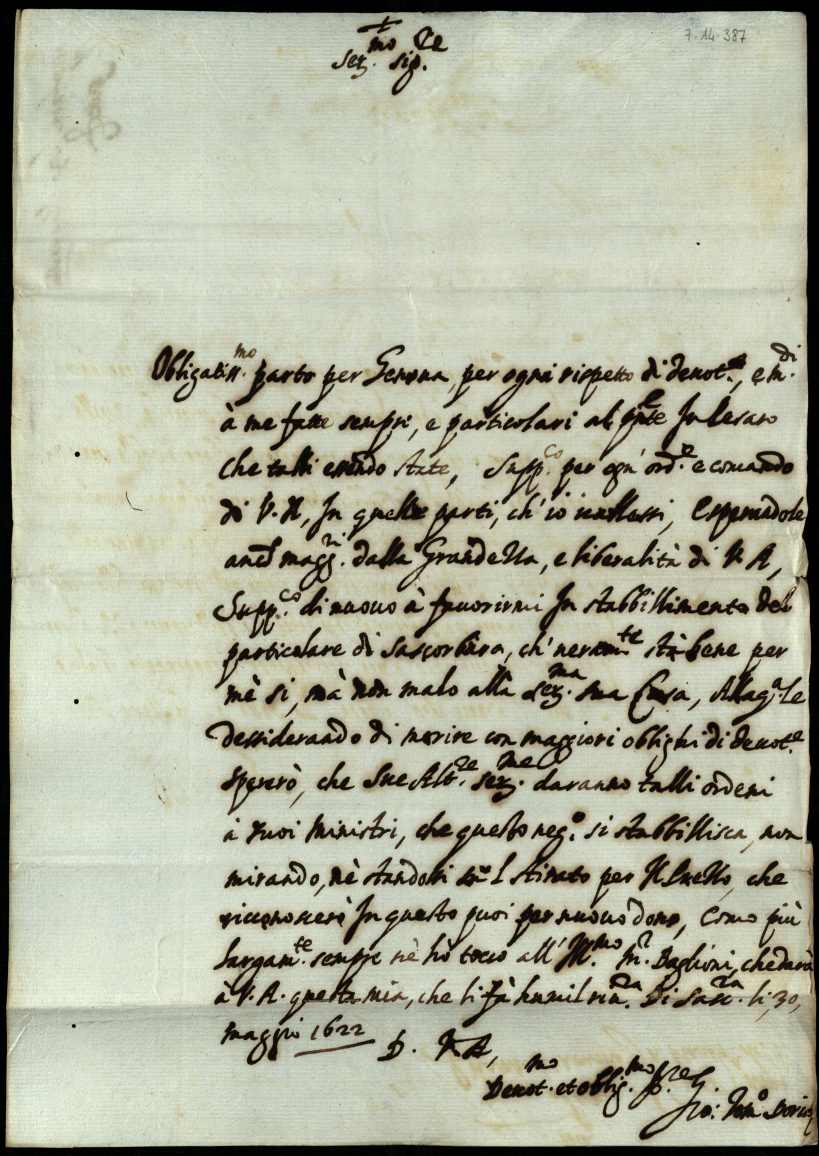 7.14.387
Ser.mo Sig.re
Obligatiss.mo parto per Genova, per ogni rispetto di devot.ne, e m.di
à me fatte sempre, e particolari al pnte In
che talli essendo state, Supp.co per ogn' ord.e e comando
di V. A, In quelle parti, ch' io
anco magg.ri dalla Grandezza, e liberalità di V. A,
Supp.co di nuovo à favorirmi In stabbillimento del
particolare di ch' veram.te stà bene per
mè si, mà non malo alla Ser.ma sua Casa,
dessiderando di morire con maggiori oblighi di devot.e
sperarò, che Sue Alt.ze Ser.me daranno talli ordeni
à suoi Ministri, che questo neg.o si stabbillisca, non
mirando, nè per che
riconoscerò In questo puoi per nuovo dono, Como più
largam.te sempre nè hò all' Ill.mo M.r Baglioni, che darà
à V. A. questa mia, che li fà humil Di li, 30,
maggio 1622
D. V. A,
Devot.mo et oblig.mo S.re
Gio: